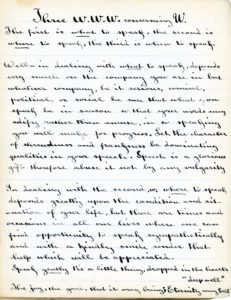 Three W.W.W. concerning W.
The first is what to speak, the second is
where to speak, the third is when to speak.
Well in dealing with what to speak, depends
very much on the company you are in but
whatever company, be it serious, comical,
political, or social be sure that what you
speak be in season so that your words may
edify rather than amuse, in so speaking
you will make for progress. Let the character
of shrewdness and frankness be dominating
qualities in your speech. Speech is a glorious
gift therefore abuse it not by any vulgarity
In dealing with the second, where to speak
depends greatly upon the condition and sit-
uation of your life, but there are times and
occasions in all our lives where one can
find opportunity to speak sympathetically
and with a kindly smile, under that
help which will be appreciated.
Speak gently tis a little thing, dropped in the heart's
"deep well"
The joy, the good, that it may bring, Eternity may tell